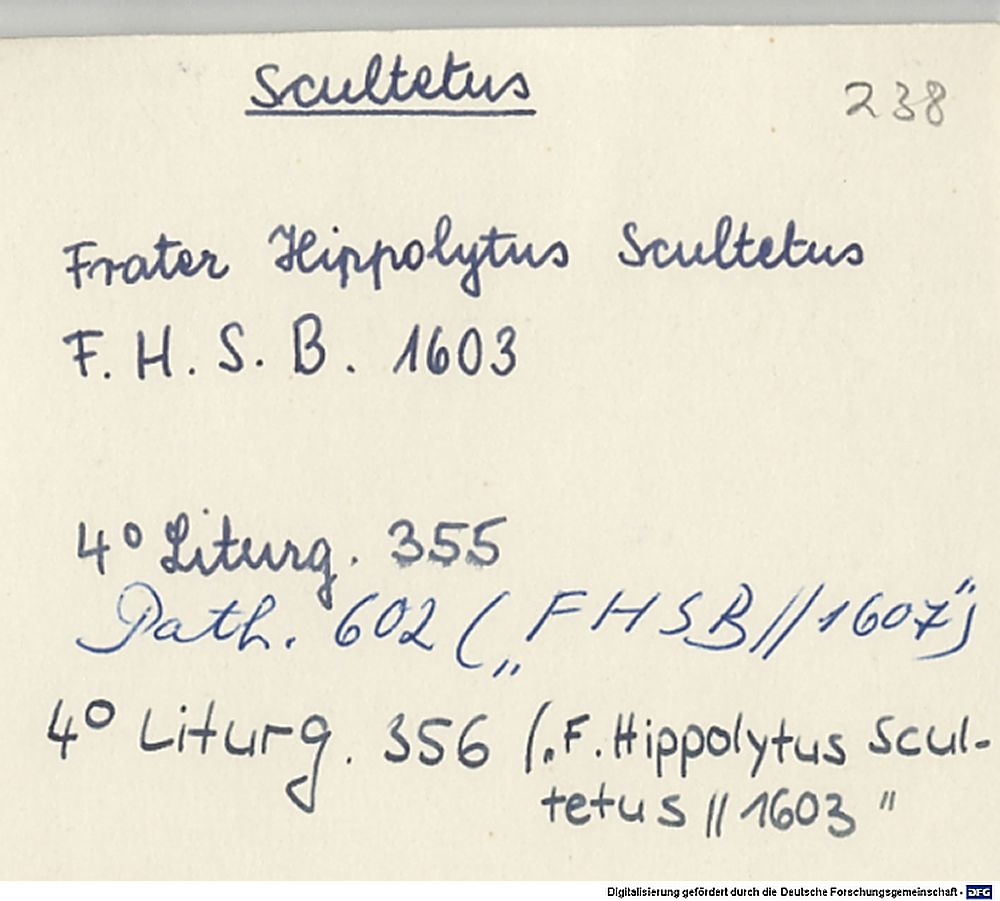 Scultetus
238
Frater Hippolytus Scultetus
F. H. S. B. 1603
4° Liturg. 355
Path. 602 („FHSB//1607")
4° Liturg. 356 („F. Hippolytus Scul-
tetus // 1603"
Digitalisierung gefördert durch die Deutsche Forschungsgemeinschaft - DFG